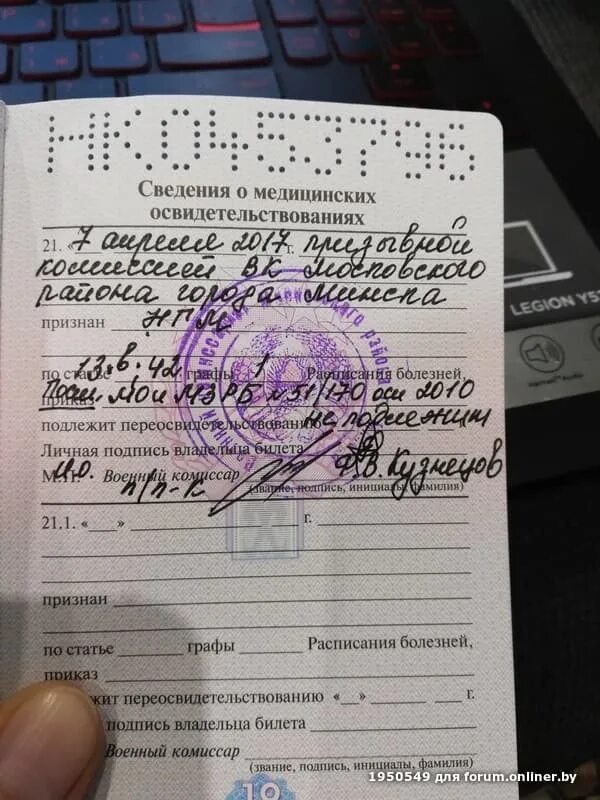 НК0453796
Сведения о медицинских
освидетельствованиях
21. «7 апреля 2017 г. призывной
комиссией ВК Московского
района города Минска
признан НГМ
по статье 13.в. 42 графы 1 Расписания болезней,
приказ Пост. МО и МЗ РБ №51/170 от 2010
подлежит переосвидетельствованию не подлежит
Личная подпись владельца билета
М.П. Военный комиссар Д.В. Кузнецов
п/п-к (звание, подпись, инициалы, фамилия)
21.1. «___» г.
признан
по статье графы Расписания болезней,
приказ
жит переосвидетельствованию «__» г.
подпись владельца билета
Военный комиссар
(звание, подпись, инициалы, фамилия)
10
LEGION Y5
1950549 для forum.onliner.by